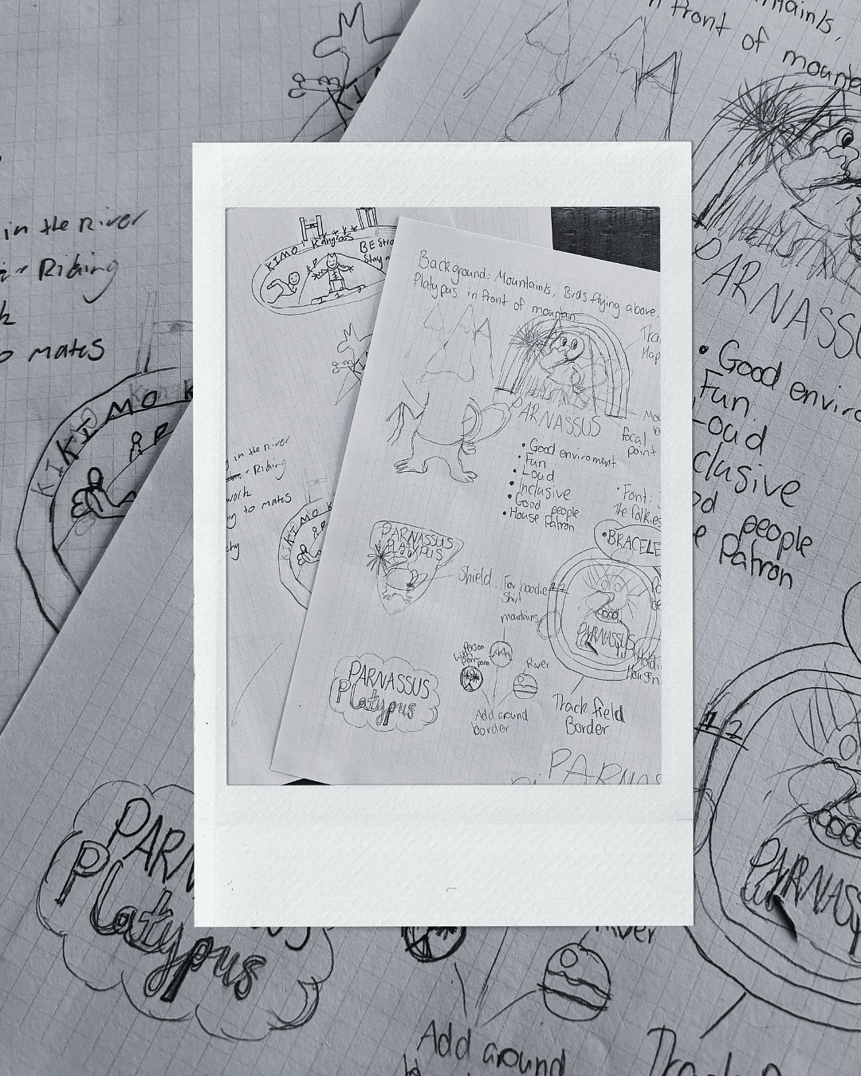 in front of mounta
in the River
Riding
to mates
KIKI MO K
PARNASSUS
• Good enviro
Fun
Loud
clusive
od people
e Patron
12
PARNASSUS
PARN
Platypus
River
Add around
b
Track F
KIMO Kangaroos
BE Stro
Stay
Background: Mountainks, Birds flying above.
Platypas in front of mountain.
PARNASSUS
focal
point
• Good enviroment
• Fun
• Loud
• Inclusive
• Good people
• House Patron
• Font:
the Falkies
• BRACELE
in the River
Riding
work
to mates
KIKI MO K
PARNASSUS
PLATYPUS
Shield: For hoodie
Shirt
mountains
12
PARNASSUS
Person
with Pom pom
River
PARNASSUS
Platypus
Add around
border
Track field
Border
PARNAS